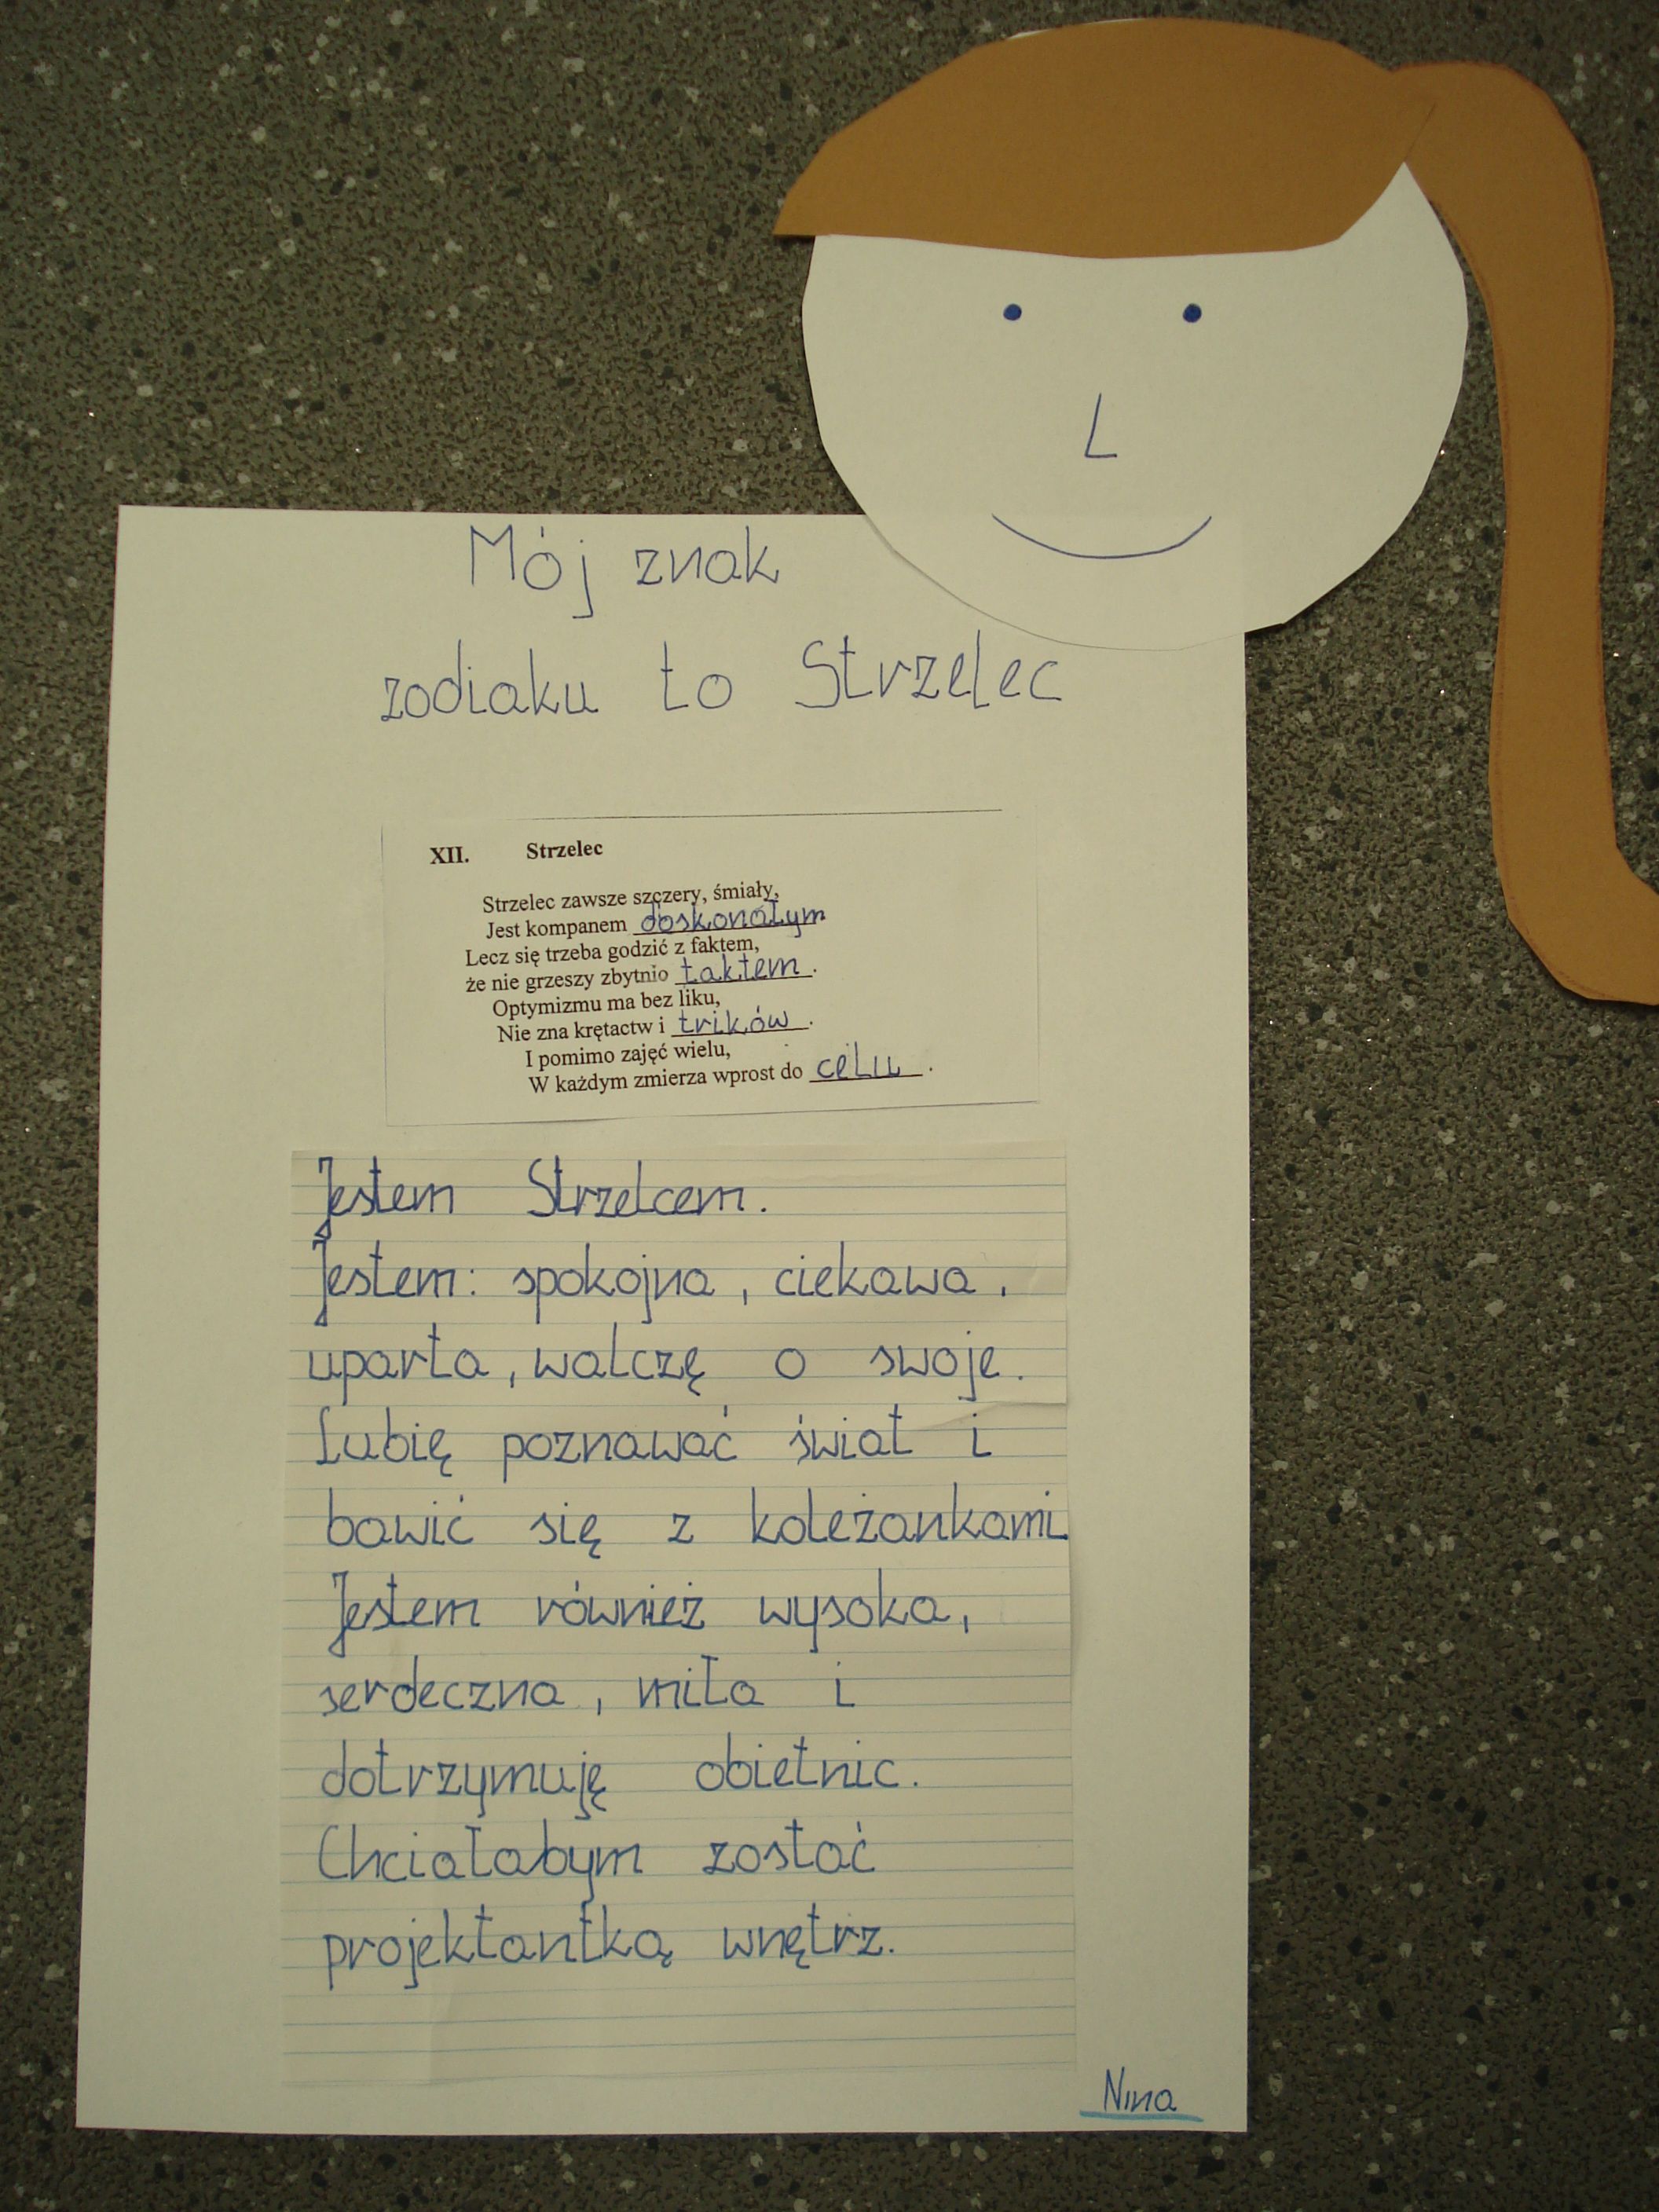 Mój znak
zodiaku to Strzelec
XII. Strzelec
Strzelec zawsze szczery, śmiały,
Jest kompanem doskonałym
Lecz się trzeba godzić z faktem,
że nie grzeszy zbytnio taktem.
Optymizmu ma bez liku,
Nie zna krętactw i trików.
I pomimo zajęć wielu,
W każdym zmierza wprost do celu.
Jestem Strzelcem.
Jestem: spokojna, ciekawa,
uparta, walczę o swoje.
Lubię poznawać świat i
bawić się z koleżankami
Jestem również wysoka,
serdeczna, miła i
dotrzymuję obietnic.
Chciałabym zostać
projektantką wnętrz.
Nina